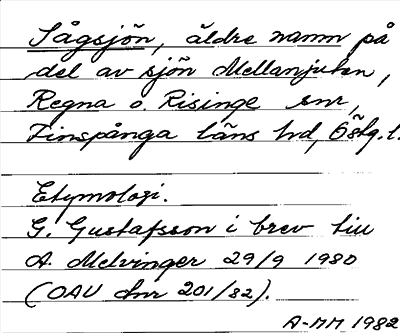 Sågsjön, äldre namn på
del av sjön Mellanjuten,
Regna o. Risinge snr,
Finspånga läns hd, Östg. l.
Etymologi.
G. Gustafsson i brev till
A. Melvinger 29/9 1980
(OAU dnr 201/82).
A-MM 1982